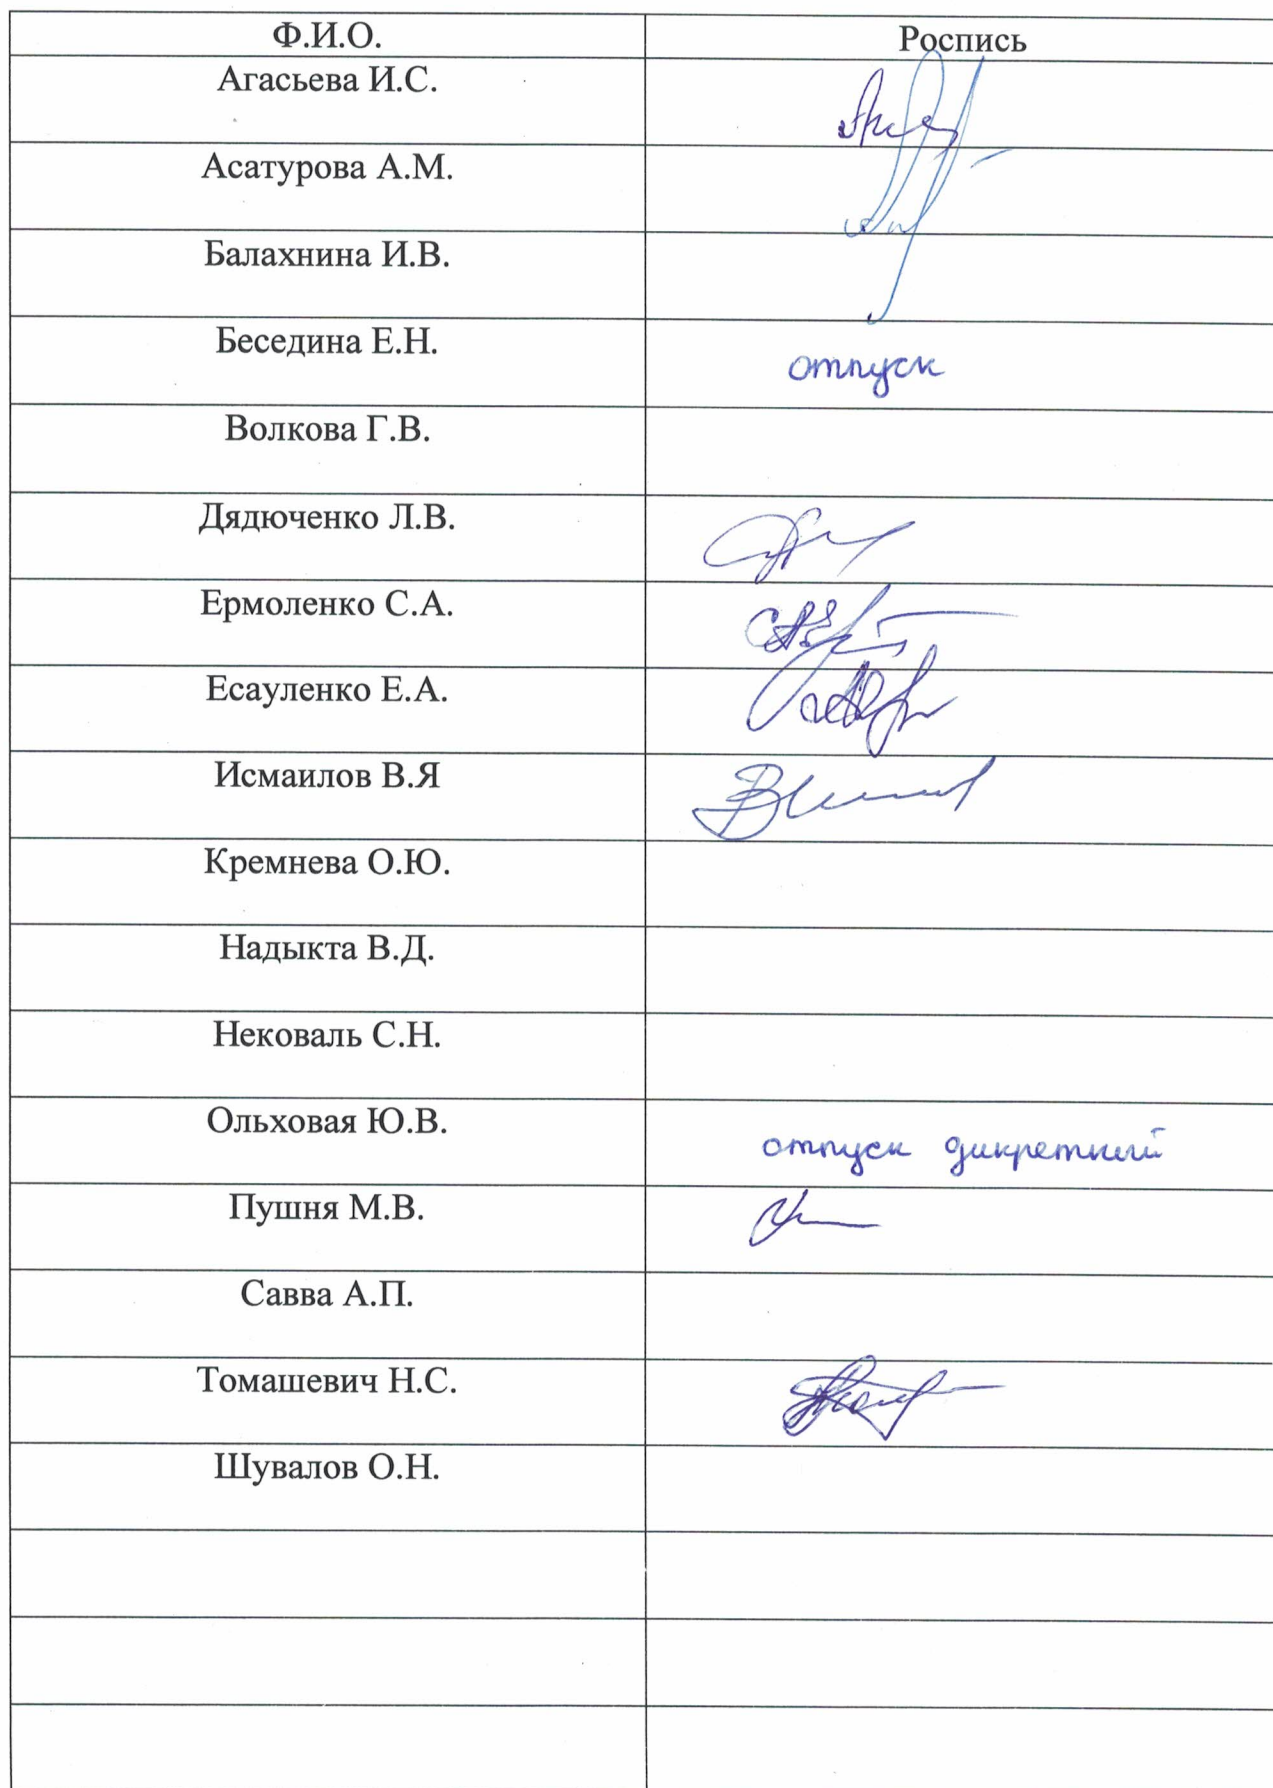 Ф.И.О. Роспись
Агасьева И.С.
Асатурова А.М.
Балахнина И.В.
Беседина Е.Н. отпуск
Волкова Г.В.
Дядюченко Л.В.
Ермоленко С.А.
Есауленко Е.А.
Исмаилов В.Я
Кремнева О.Ю.
Надыкта В.Д.
Нековаль С.Н.
Ольховая Ю.В. отпуск дикретний
Пушня М.В.
Савва А.П.
Томашевич Н.С.
Шувалов О.Н.